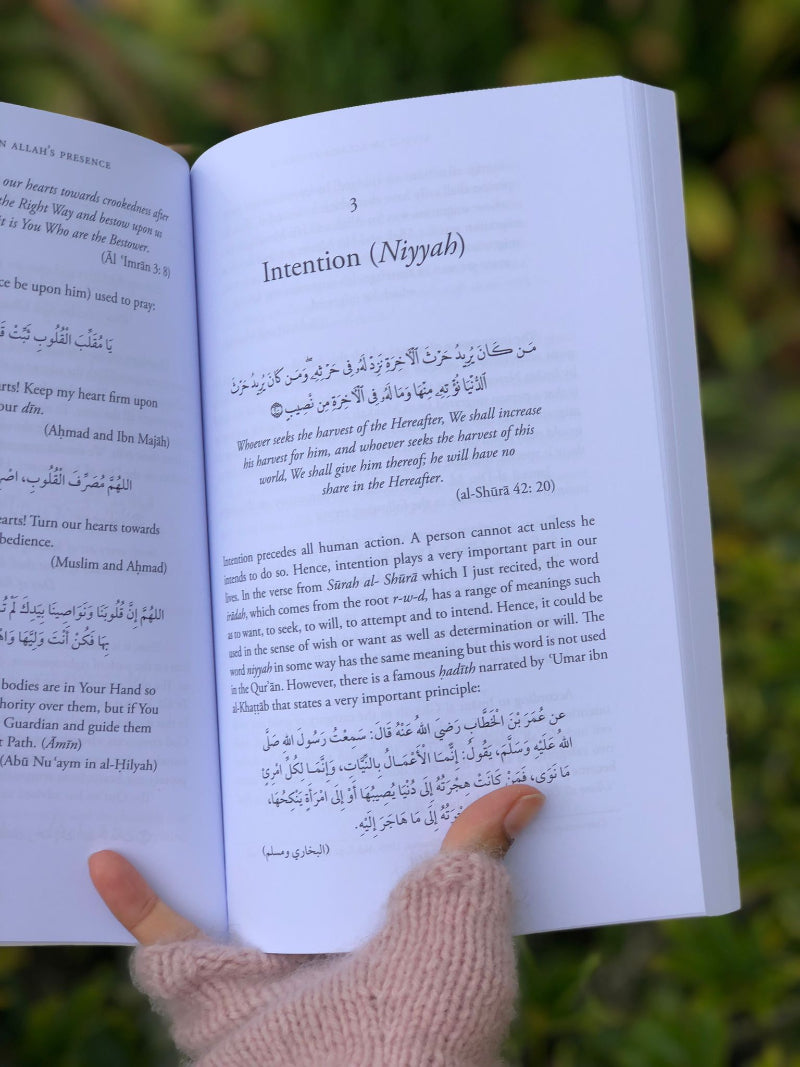 N ALLAH'S PRESENCE
our hearts towards crookedness after
the Right Way and bestow upon us
it is You Who are the Bestower.
(Āl ʿImrān 3: 8)
ce be upon him) used to pray:
يَا مُقَلِّبَ الْقُلُوبِ ثَبِّتْ
arts! Keep my heart firm upon
our dīn.
(Aḥmad and Ibn Mājāh)
اللهُمَّ مُصَرِّفَ الْقُلُوبِ،
earts! Turn our hearts towards
bedience.
(Muslim and Aḥmad)
اللهُمَّ إِنَّ قُلُوبَنَا وَنَوَاصِينَا بِيَدِكَ لَمْ
بِهَا فَكُنْ أَنْتَ وَلِيَّهَا
bodies are in Your Hand so
hority over them, but if You
Guardian and guide them
t Path. (Āmīn)
(Abū Nuʿaym in al-Ḥilyah)
3
Intention (Niyyah)
مَن كَانَ يُرِيدُ حَرْثَ ٱلْآخِرَةِ نَزِدْ لَهُۥ فِى حَرْثِهِۦ ۖ وَمَن كَانَ يُرِيدُ حَرْثَ
ٱلدُّنْيَا نُؤْتِهِۦ مِنْهَا وَمَا لَهُۥ فِى ٱلْآخِرَةِ مِن نَّصِيبٍ ٢٠
Whoever seeks the harvest of the Hereafter, We shall increase
his harvest for him, and whoever seeks the harvest of this
world, We shall give him thereof; he will have no
share in the Hereafter.
(al-Shūrā 42: 20)
Intention precedes all human action. A person cannot act unless he
intends to do so. Hence, intention plays a very important part in our
lives. In the verse from Sūrah al- Shūrā which I just recited, the word
irādah, which comes from the root r-w-d, has a range of meanings such
as to want, to seek, to will, to attempt and to intend. Hence, it could be
used in the sense of wish or want as well as determination or will. The
word niyyah in some way has the same meaning but this word is not used
in the Qur'ān. However, there is a famous ḥadīth narrated by ʿUmar ibn
al-Khaṭṭāb that states a very important principle:
عن عُمَرَ بْنَ الْخَطَّابِ رَضِيَ اللهُ عَنْهُ قَالَ: سَمِعْتُ رَسُولَ اللهِ صَلَّى
اللهُ عَلَيْهِ وَسَلَّمَ، يَقُولُ: إِنَّمَا الْأَعْمَالُ بِالنِّيَّاتِ، وَإِنَّمَا لِكُلِّ امْرِئٍ
مَا نَوَى، فَمَنْ كَانَتْ هِجْرَتُهُ إِلَى دُنْيَا يُصِيبُهَا أَوْ إِلَى امْرَأَةٍ يَنْكِحُهَا،
إِلَى مَا هَاجَرَ إِلَيْهِ.
(البخاري ومسلم)